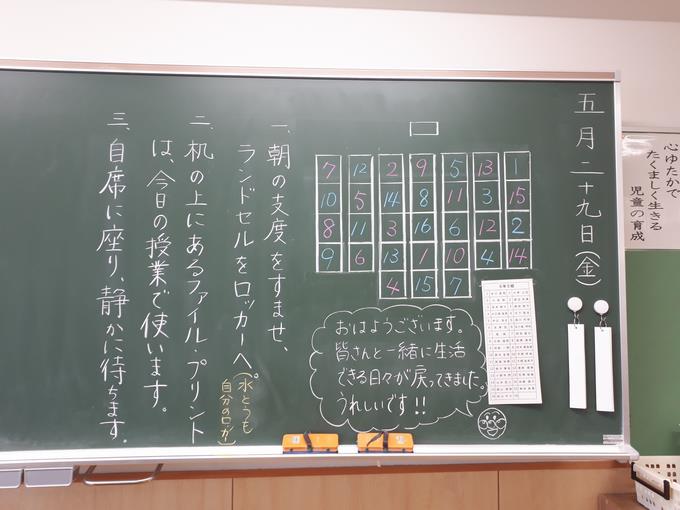 心ゆたかで
たくましく生きる
児童の育成
五月二十九日(金)
7 12 2 9 5 13 1
10 5 14 8 11 3 15
8 11 3 16 6 12 2
9 6 13 1 10 4 14
4 15 7
おはようございます。
皆さんと一緒に生活
できる日々が戻ってきました。
うれしいです!!
一、朝の支度をすませ、
ランドセルをロッカーへ。
(水とうも
自分のロッカー)
二、机の上にあるファイル・プリント
は、今日の授業で使います。
三、自席に座り、静かに待ちます。